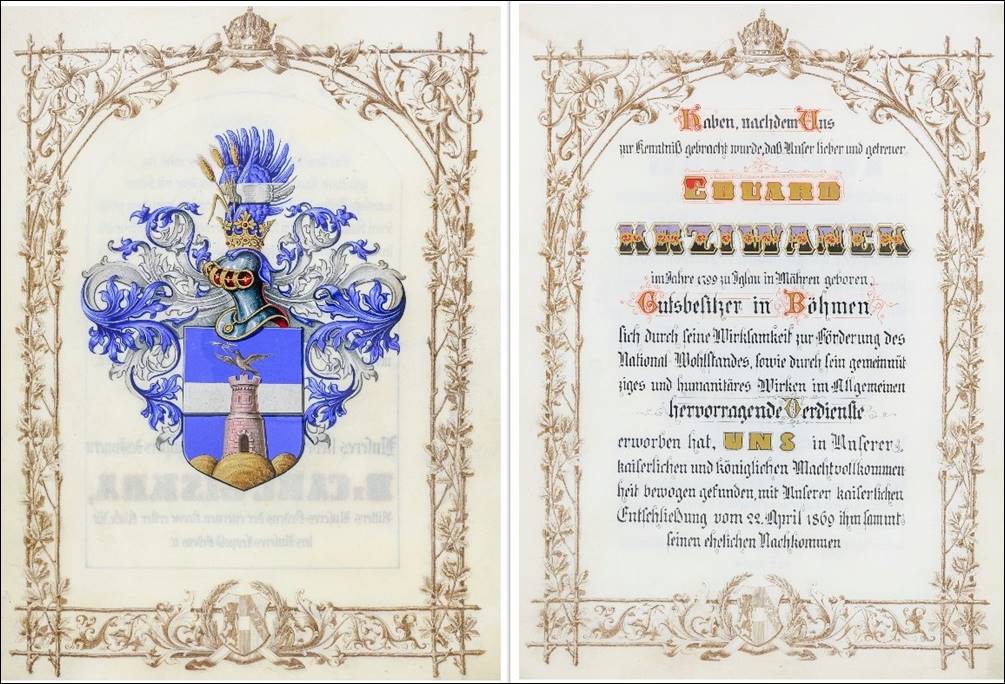 Haben, nachdem Uns
zur Kenntniß gebracht wurde, daß Unser lieber und getreuer
EDUARD
KRZIWANEK
im Jahre 1799 zu Iglau in Mähren geboren,
Gutsbesitzer in Böhmen
sich durch seine Wirksamkeit zur Förderung des
National Wohlstandes, sowie durch sein gemeinnüt
ziges und humanitäres Wirken im Allgemeinen
hervorragende Verdienste
erworben hat, UNS in Unserer
kaiserlichen und königlichen Machtvollkommen
heit bewogen gefunden, mit Unserer kaiserlichen
Entschließung vom 22. April 1869 ihm sammt
seinen ehelichen Nachkommen